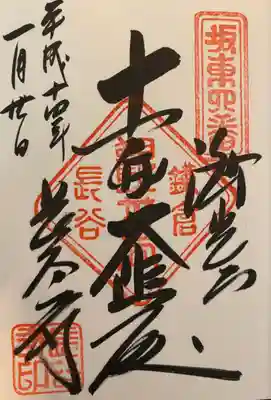 坂東四番
海光山
鎌倉
十一面大悲殿
長谷
長谷寺
平成十四年
一月廿日